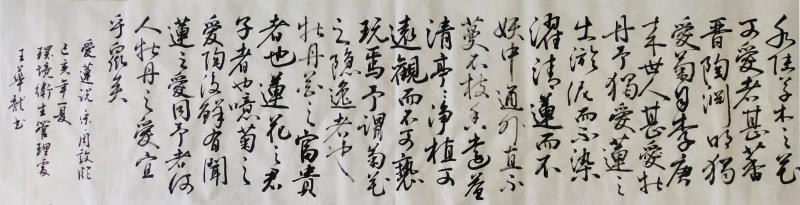 水陸草木之花
可愛者甚蕃
晋陶渊明獨
愛菊自李唐
来世人甚愛牡
丹予獨愛蓮之
出淤泥而不染
濯清蓮而不
妖中通外直不
蔓不枝香遠益
清亭亭净植可
遠觀而不可褻
玩焉予謂菊花
之隐逸者也
牡丹花之富貴
者也蓮花之君
子者也噫菊之
愛陶後鮮有聞
蓮之愛同予者何
人牡丹之愛宜
乎衆矣
愛蓮説宋周敦頤
己亥年夏
環境衛生管理處
王華龍書